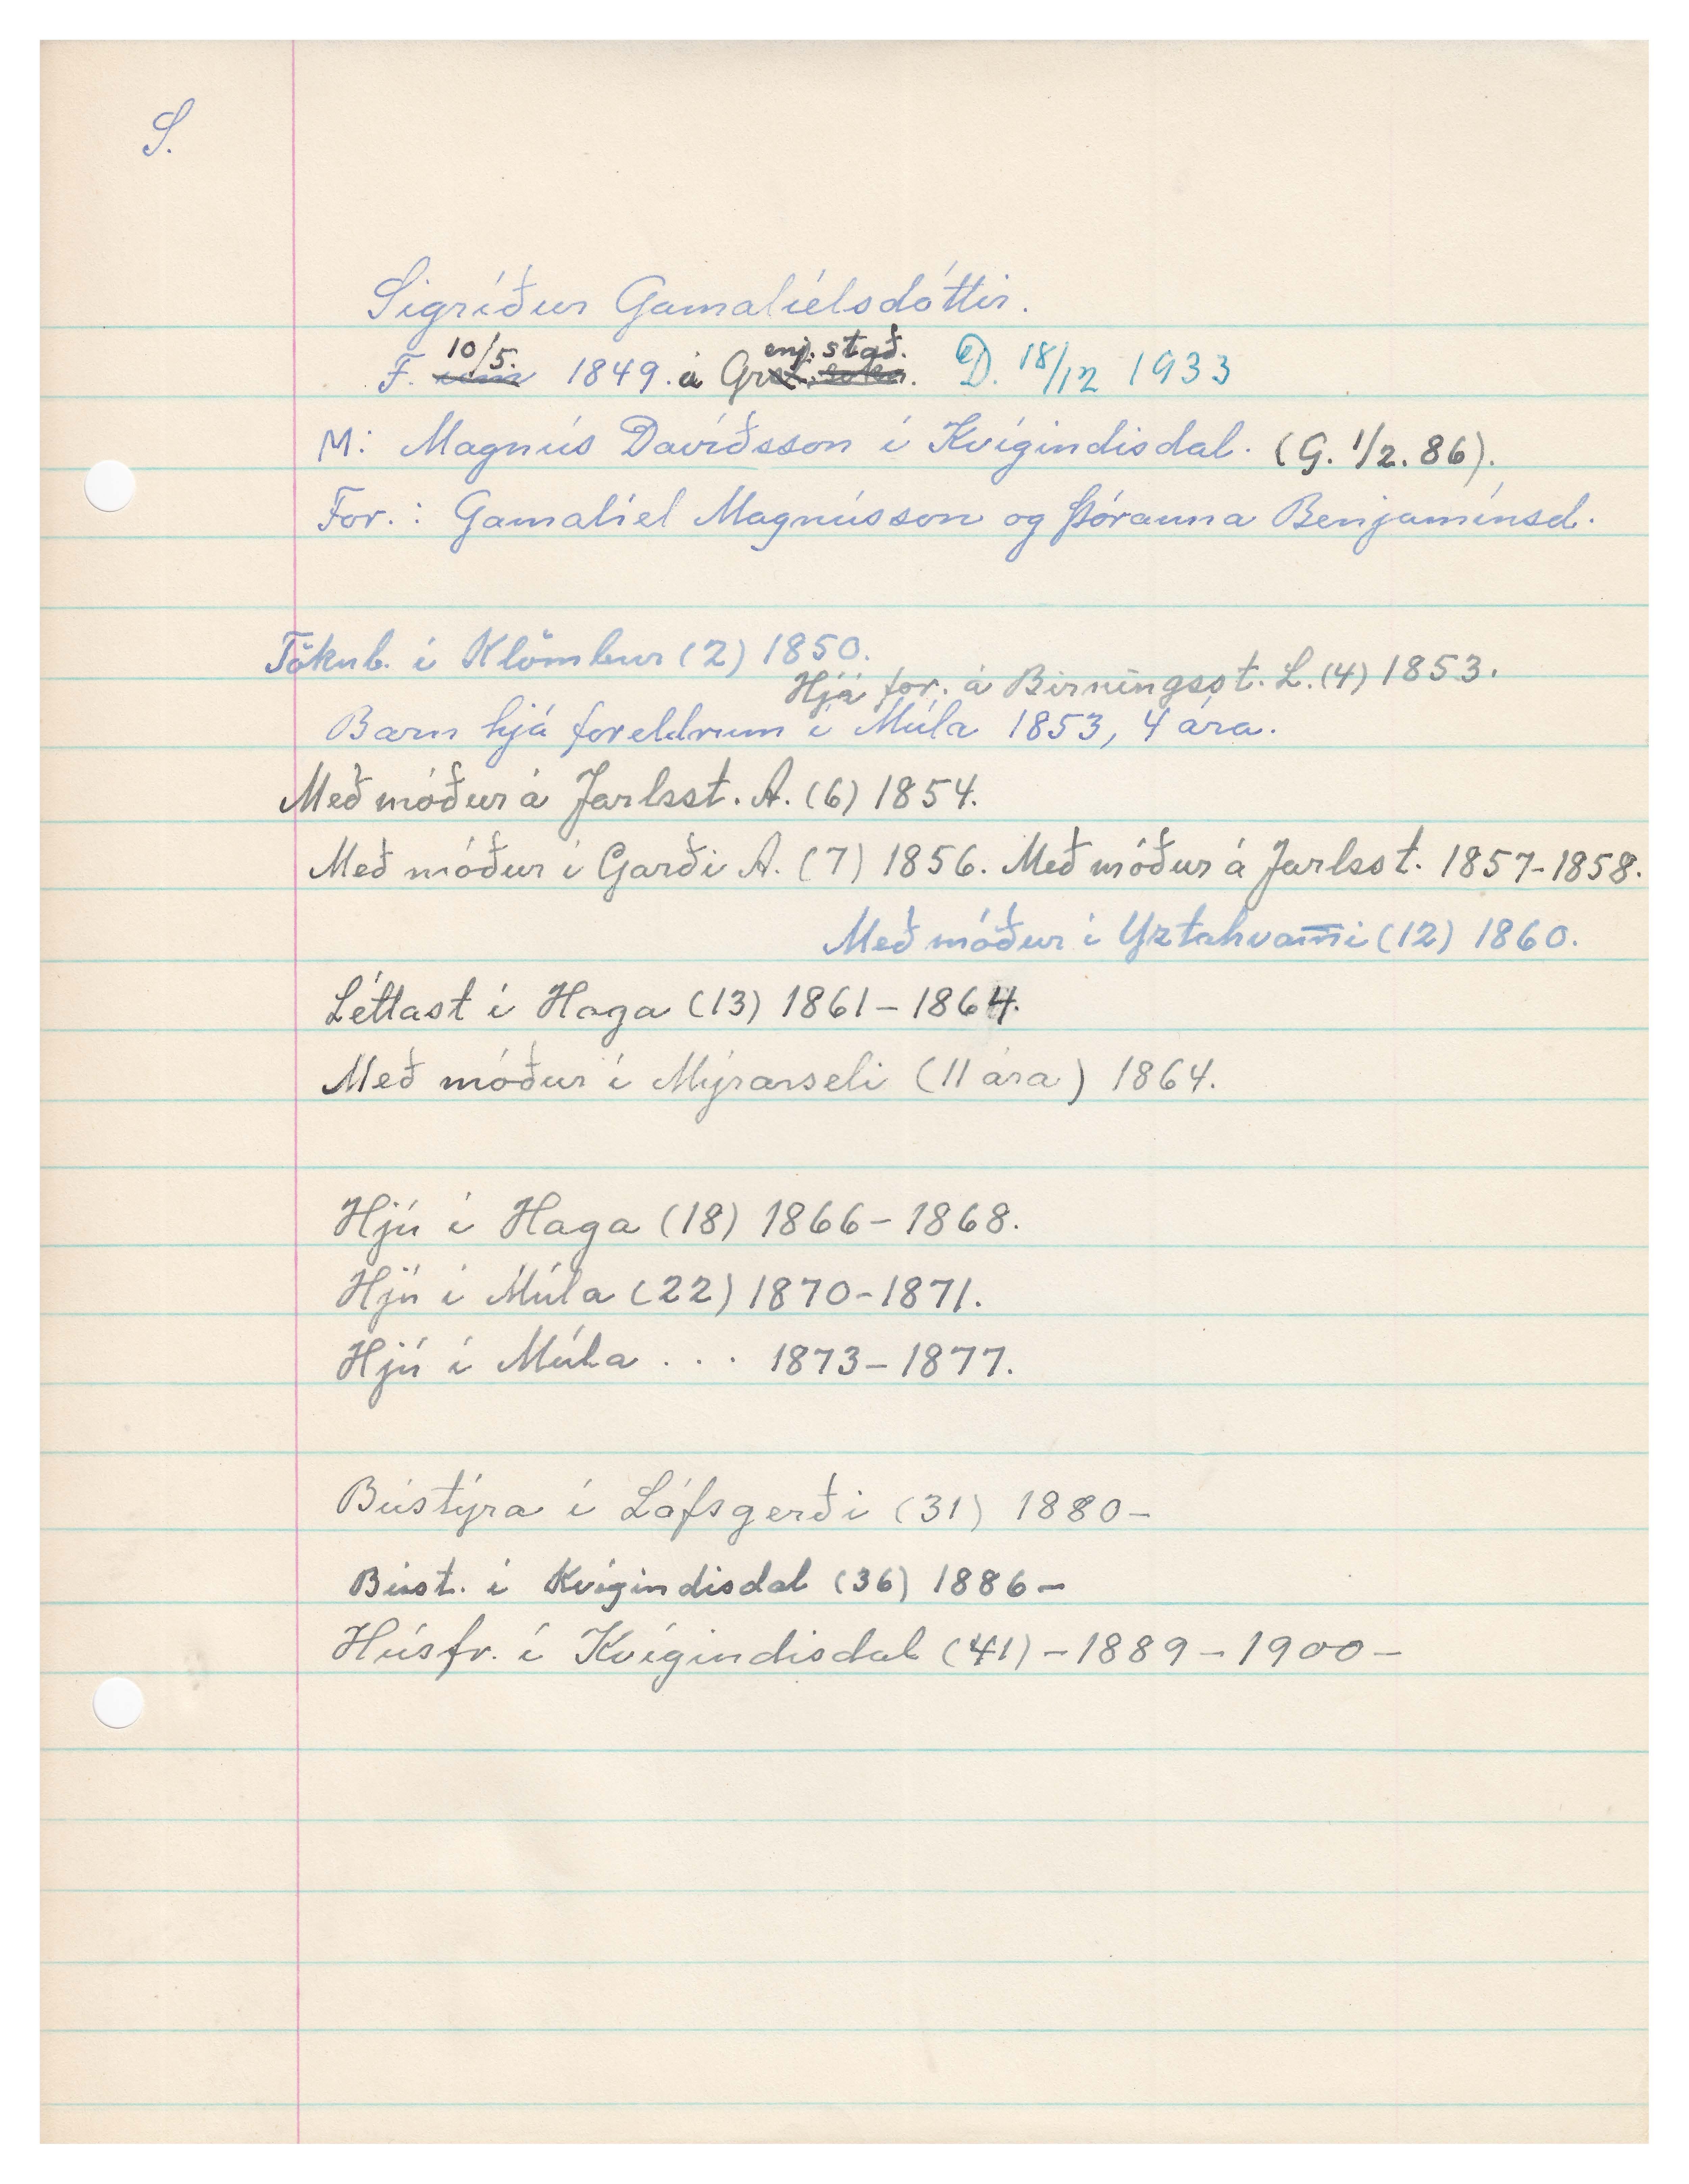 S.
Sigríður Gamalíelsdóttir.
F. 10/5. 1849. á Grenj.stað. D. 18/12 1933
M: Magnús Davíðsson í Kvígindisdal. (G. 1/2. 86).
For.: Gamalíel Magnússon og Þóranna Benjamínsd.
Tökub. í Klömbur (2) 1850.
Hjá for. á Birningsst. L. (4) 1853.
Barn hjá foreldrum í Múla 1853, 4 ára.
Með móður á Jarlsst. A. (6) 1854.
Með móður í Garði A. (7) 1856. Með móður á Jarlsst. 1857-1858.
Með móður í Yztahvam̅i (12) 1860.
Léttast í Haga (13) 1861-1864.
Með móður í Mýrarseli (11 ára) 1864.
Hjú í Haga (18) 1866-1868.
Hjú í Múla (22) 1870-1871.
Hjú í Múla ... 1873-1877.
Bústýra í Láfsgerði (31) 1880-
Búst. í Kvígindisdal (36) 1886-
Húsfr. í Kvígindisdal (41) -1889-1900-